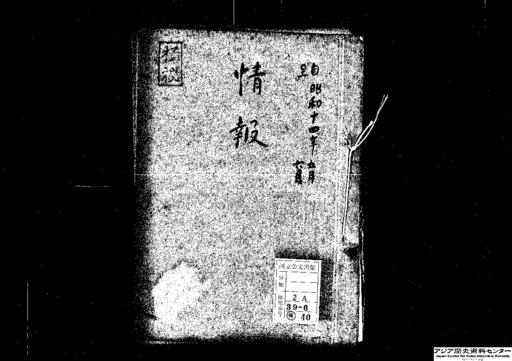 自昭和十四年五月
至　　　　　六月
情報
秘
国立公文書館
分類
2A
39-6
40
アジア歴史資料センター
Japan Center for Asian Historical Records